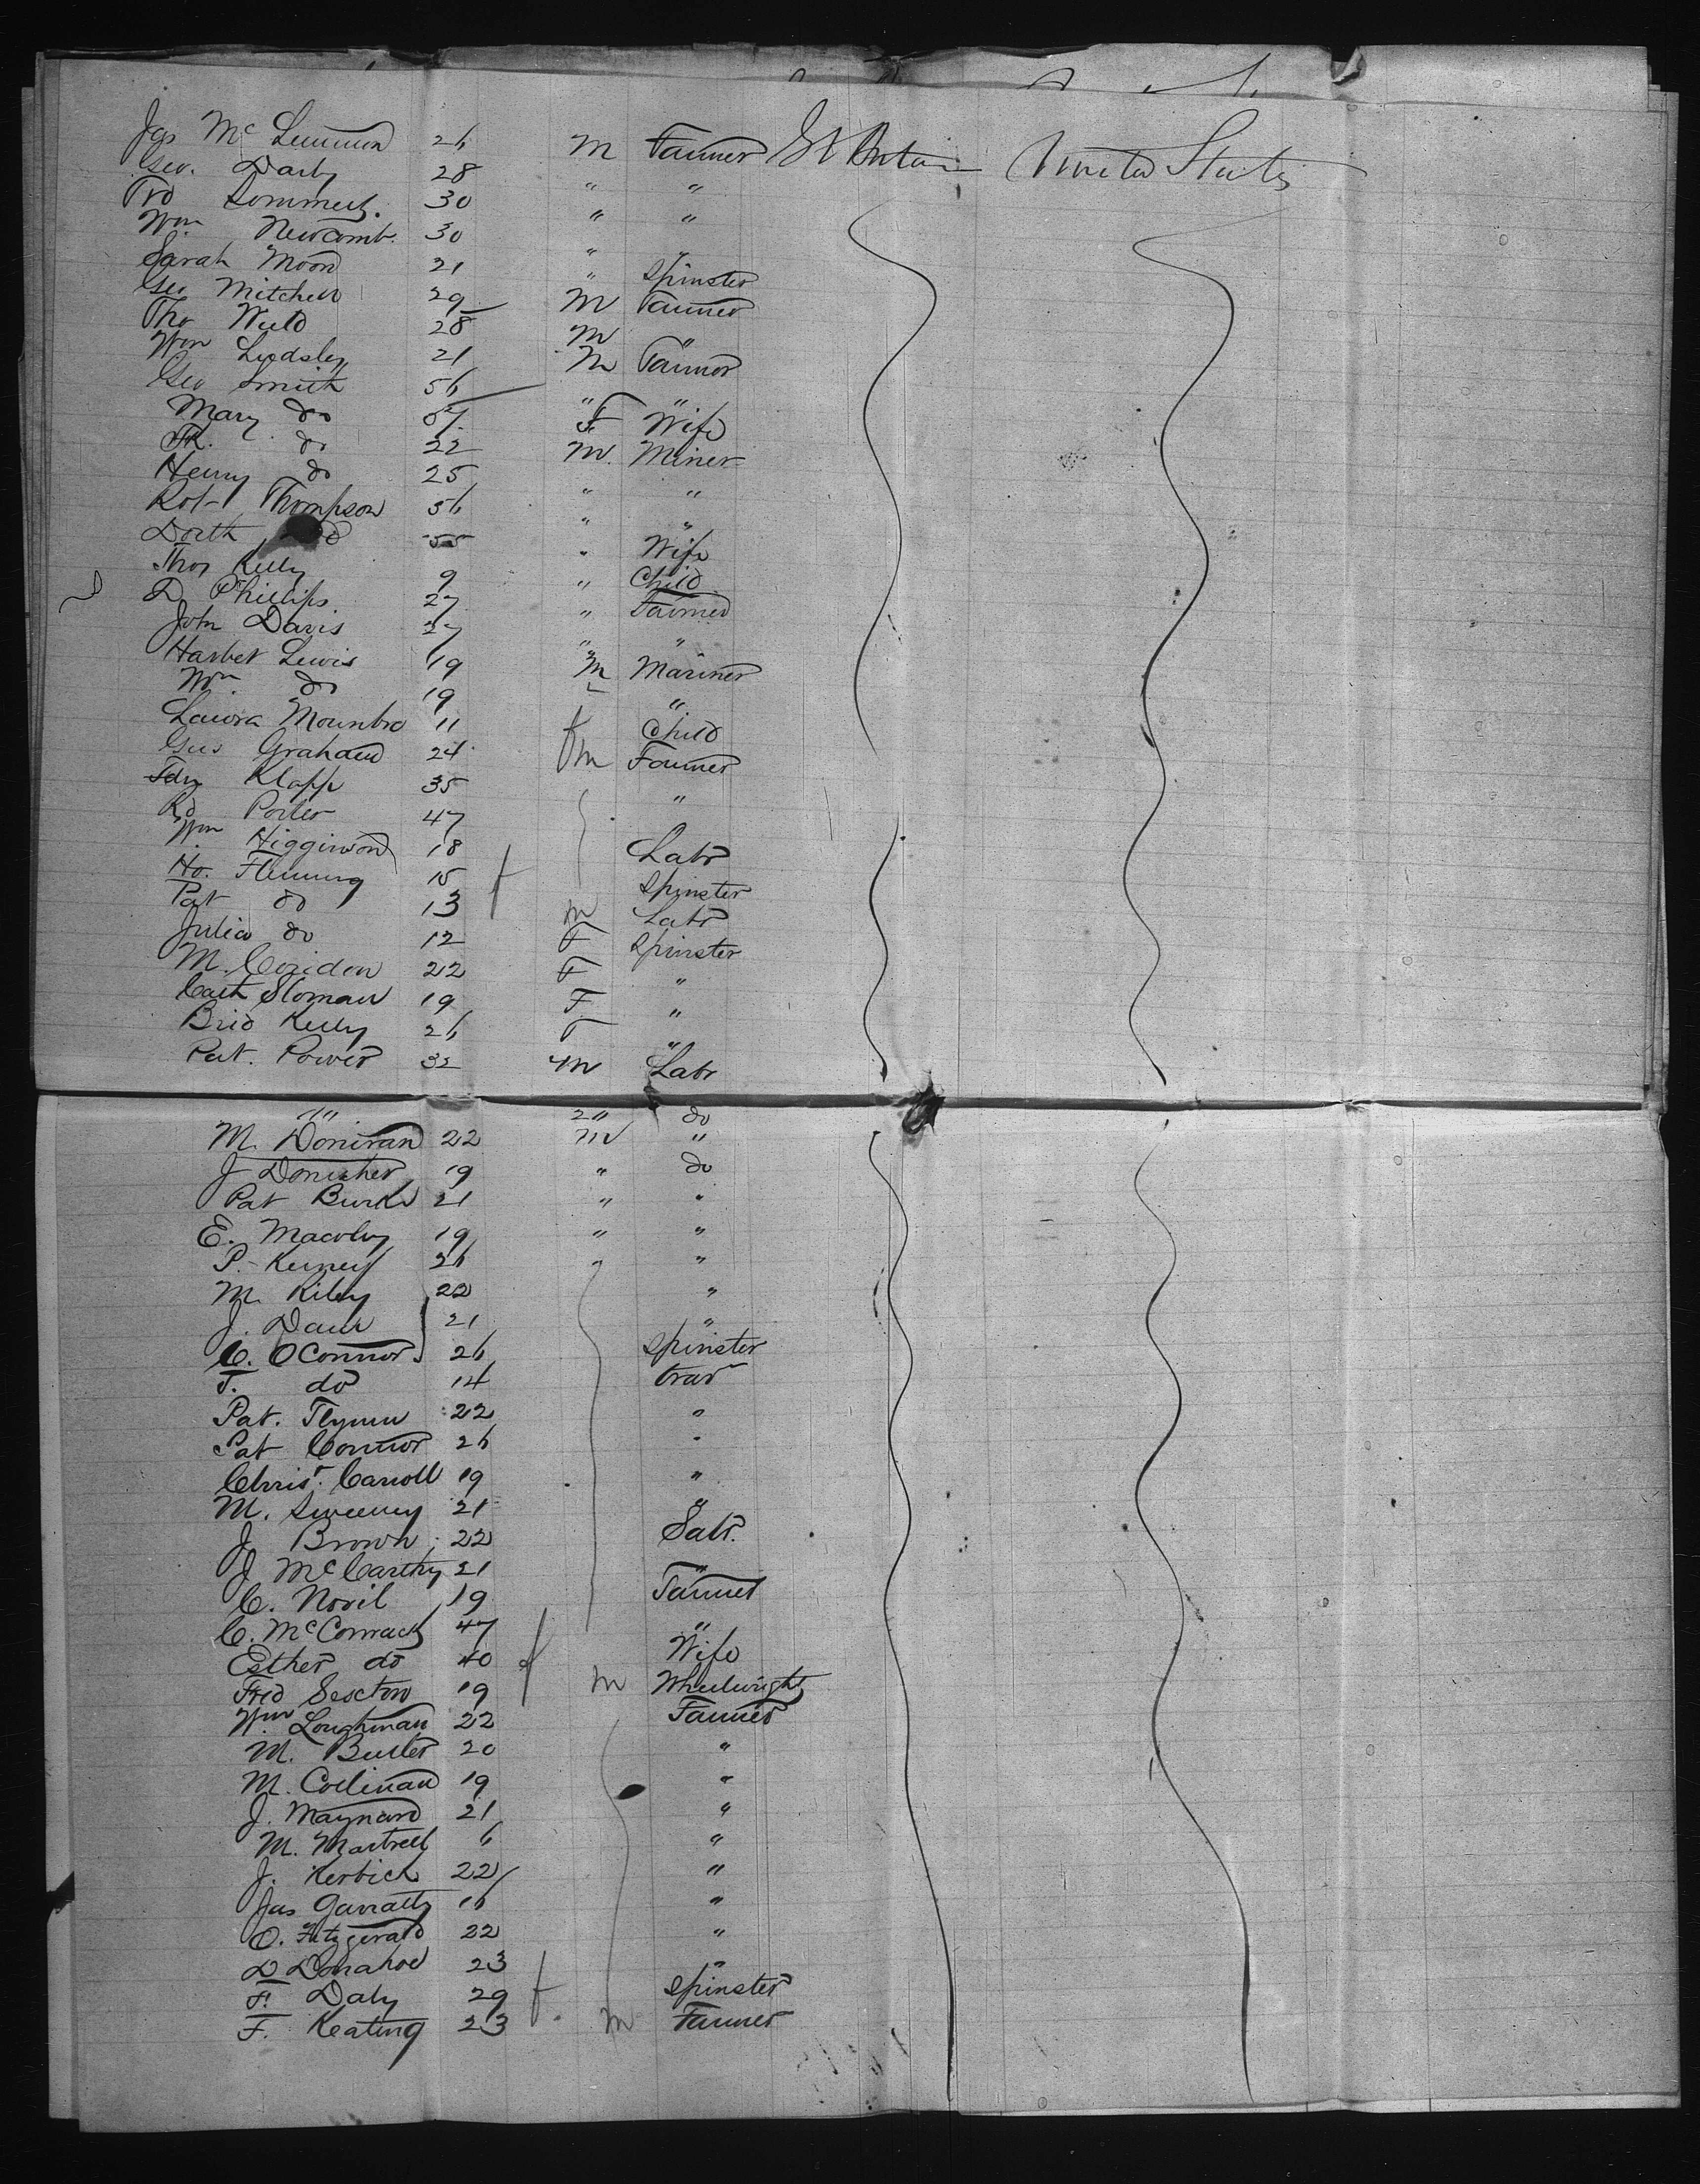 Jas McLennon 26 M Farmer Gt Britain United States
Geo. Darby 28 " "
Frd Sommers. 30 " "
Wm Newcomb. 30 "
Sarah Moore 21 " Spinster
Geo Mitchell 29 M Farmer
Tho Weeld 28 M "
Wm Ludsley 21 M Farmer
Geo Smith 56 " "
Mary do 57 F Wife
Th. do 22 M. Miner
Henry do 25 " "
Robt Thompson 56 " "
Doroth do 55 " Wife
Thos Kelly 9 " Child
D Phillips 27 " Farmer
John Davis 27 " "
Harbet Lewis 19 M Mariner
Wm do 19 "
Laura 11 f Child
Geo Graham 24 m Farmer
Klapp 35 "
Rd Porter 47
Wm Higginson 18 Labr
Ho. Fleming 15 f Spinster
Pat do 13 m Labr
Julia do 12 F Spinster
M. Coridon 22 F "
Cath Sloman 19 F "
Brid Kelly 26 F "
Pat. Power 32 M Labr
" " do
M. Donivan 22 M "
J Donisher 19 " do
Pat Burke 21 " "
E. Macoby 19 " "
P. Kerney 26 " "
M. Riley 22 "
J. Daur 21 "
C. OConnor 26 Spinster
T. do 14
Pat. Flynn 22 "
Pat Connor 26 "
Christ. Carroll 19 "
M. Sweeney 21 "
J Brown 22 Labr.
J McCarthy 21 "
C. Novil 19 Farmer
C. McCormack 47 "
Esther do 40 f Wife
Fred Sexton 19 m Wheelwright
Wm Loughman 22 Farmer
M. Butler 20 "
M. Collinan 19 "
J. Maynard 21 "
M. Martrell 6 "
J. Kerbick 22 "
Jas Garratty 16 "
O. Fitzgerald 22 "
D Donahoe 23 "
F. Daly 29 f. Spinster
F. Keating 23 m Farmer